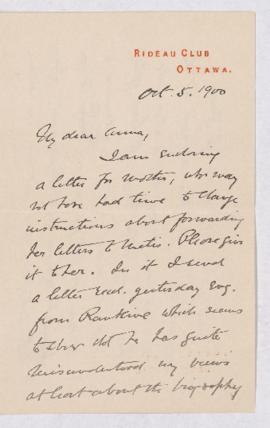 RIDEAU CLUB
OTTAWA.
Oct. 5. 1900
My dear Anna,
I am enclosing
a letter for Mother, who may
not have had time to change
instructions about forwarding
her letters to Metis. Please give
it to her. In it I send
a letter recd. yesterday evg.
from Rankine which seems
to show that he has quite
misunderstood my views
at least about the biography